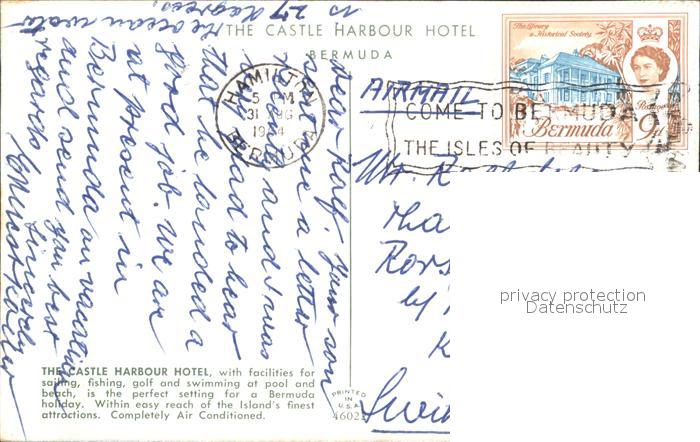 THE CASTLE HARBOUR HOTEL
BERMUDA
Dear Rolf! Your son
sent me a letter
and I was
glad to hear
that he landed a
good job. We are
at present in
Bermuda on vacation
and send you best
regards
Sincerely
the ocean water
is 27 degrees.
THE CASTLE HARBOUR HOTEL, with facilities for
sailing, fishing, golf and swimming at pool and
beach, is the perfect setting for a Bermuda
holiday. Within easy reach of the Island's finest
attractions. Completely Air Conditioned.
PRINTED
IN
U.S.A.
HAMILTON
5 PM
31
BERMUDA
COME TO BERMUDA
THE ISLES OF BEAUTY
The Library
& Historical Society
Postage
Bermuda 9d
AIRMAIL
privacy protection
Datenschutz